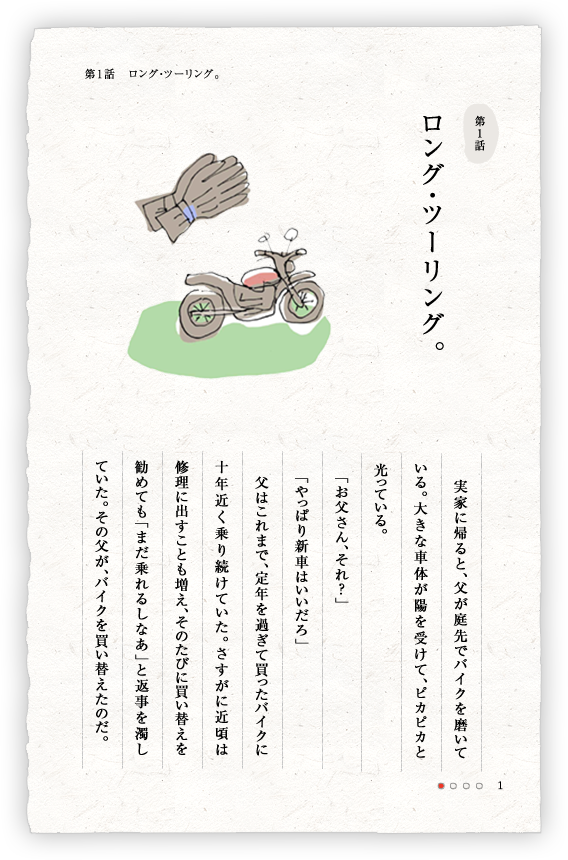 第1話　ロング・ツーリング。
第1話
ロング・ツーリング。
実家に帰ると、父が庭先でバイクを磨いて
いる。大きな車体が陽を受けて、ピカピカと
光っている。
「お父さん、それ？」
「やっぱり新車はいいだろ」
父はこれまで、定年を過ぎて買ったバイクに
十年近く乗り続けていた。さすがに近頃は
修理に出すことも増え、そのたびに買い替えを
勧めても「まだ乗れるしなあ」と返事を濁し
ていた。その父が、バイクを買い替えたのだ。
1